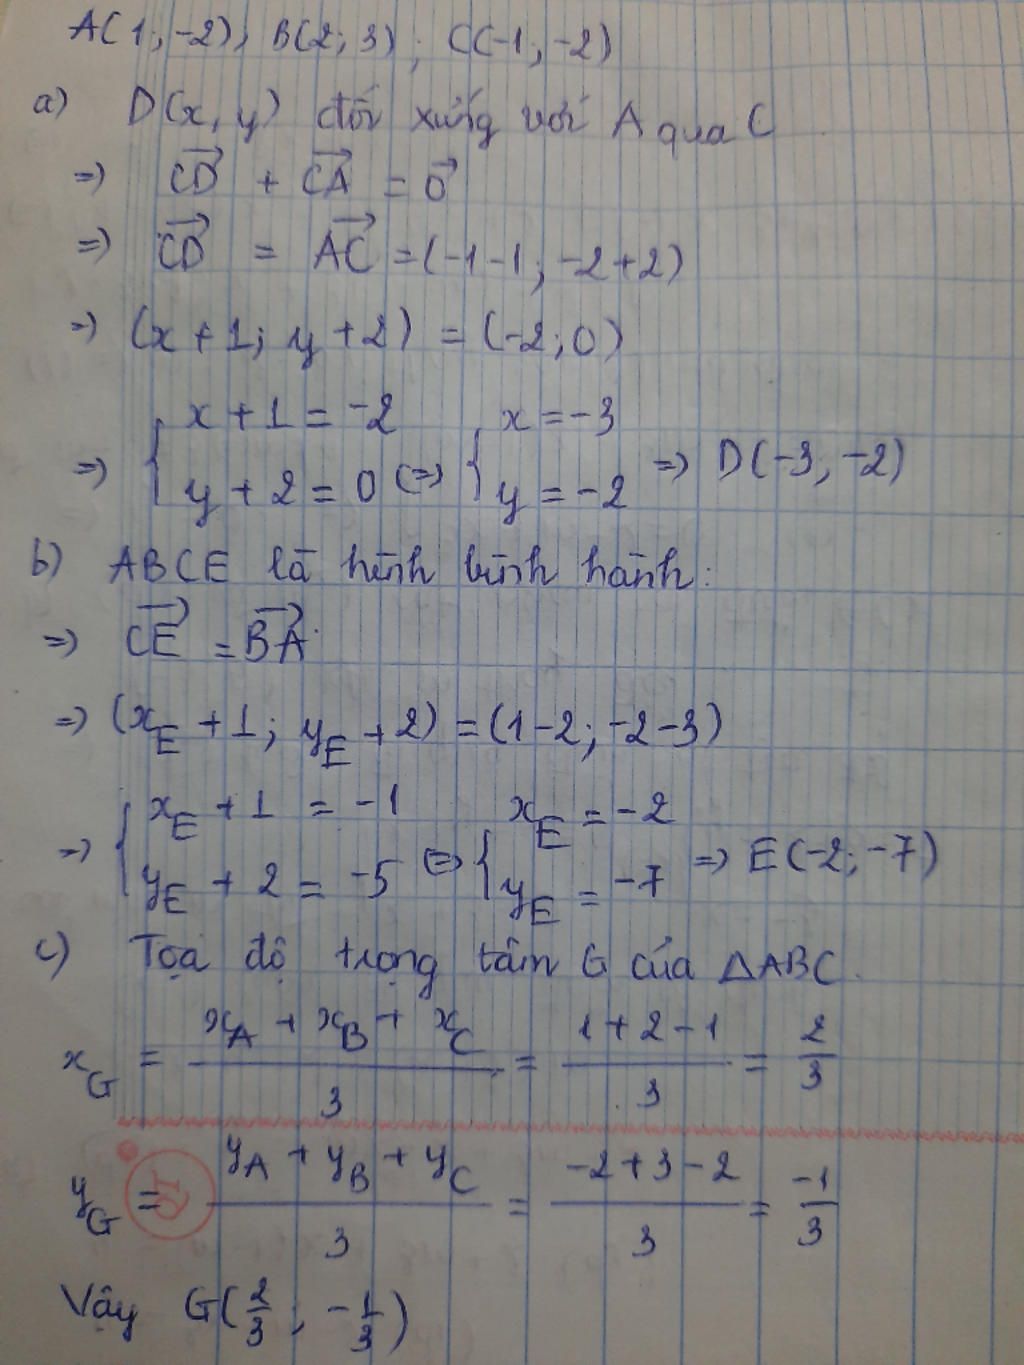 A(1; -2); B(2; 3); C(-1; -2)
a) D(x, y) đối xứng với A qua C
=> CD→ + CA→ = 0→
=> CD→ = AC→ = (-1-1; -2+2)
=> (x+1; y+2) = (-2; 0)
=> { x+1 = -2 ; y+2 = 0 <=> { x = -3 ; y = -2 => D(-3; -2)
b) ABCE là hình bình hành:
=> CE→ = BA→
=> (x_E + 1; y_E + 2) = (1-2; -2-3)
=> { x_E + 1 = -1 ; y_E + 2 = -5 <=> { x_E = -2 ; y_E = -7 => E(-2; -7)
c) Tọa độ trọng tâm G của ΔABC
x_G = (x_A + x_B + x_C)/3 = (1+2-1)/3 = 2/3
y_G = (y_A + y_B + y_C)/3 = (-2+3-2)/3 = -1/3
Vậy G(2/3; -1/3)